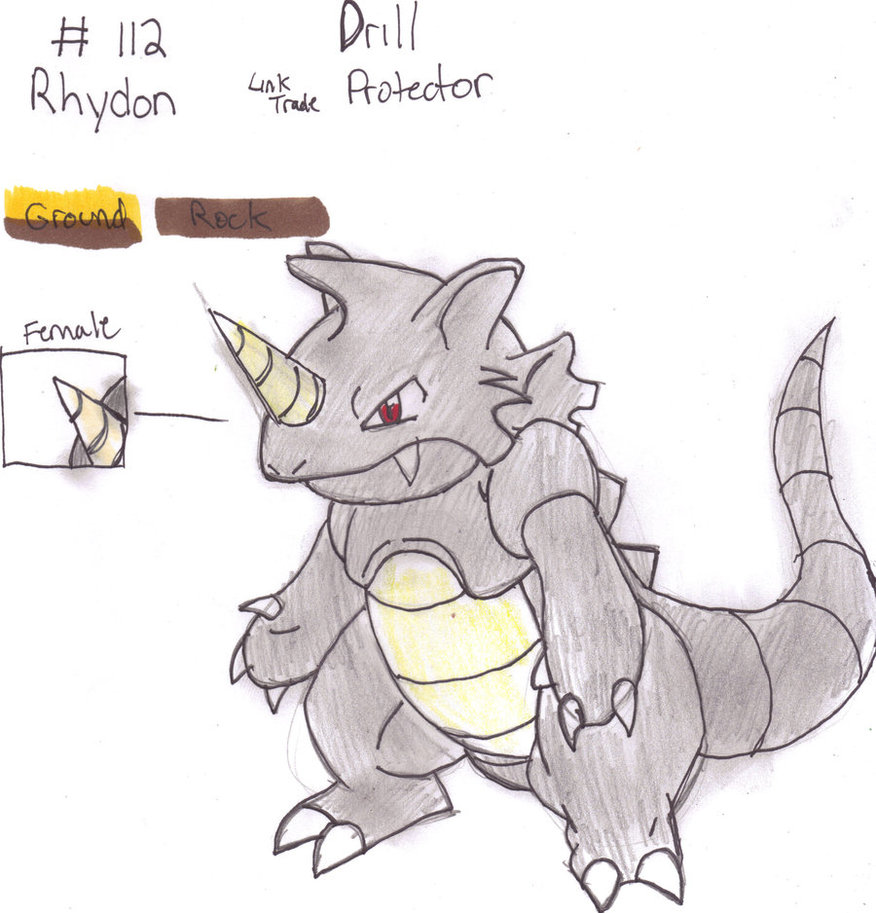 # 112
Rhydon
Drill
Link
Trade
Protector
Ground
Rock
Female